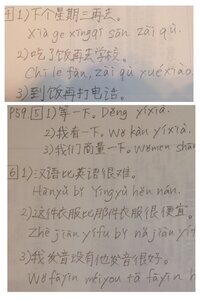 4 1) 下个星期三再去。
Xià ge xīngqī sān zài qù.
2) 吃了饭再去学校。
Chī le fàn, zài qù yuéxiào
3) 到家再打电话。
P59. 5 1) 等一下。 Děng yíxià.
2) 我看一下。 Wǒ kàn yíxià.
3) 我们商量一下。 Wǒmen shān
6 1) 汉语比英语很难。
Hànyǔ bǐ Yīngyǔ hěn nán.
2) 这件衣服比那件衣服很便宜。
Zhè jiàn yīfu bǐ nà jiàn yī
3) 我发音没有他发音很好。
Wǒ fāyīn méiyou tā fāyīn h